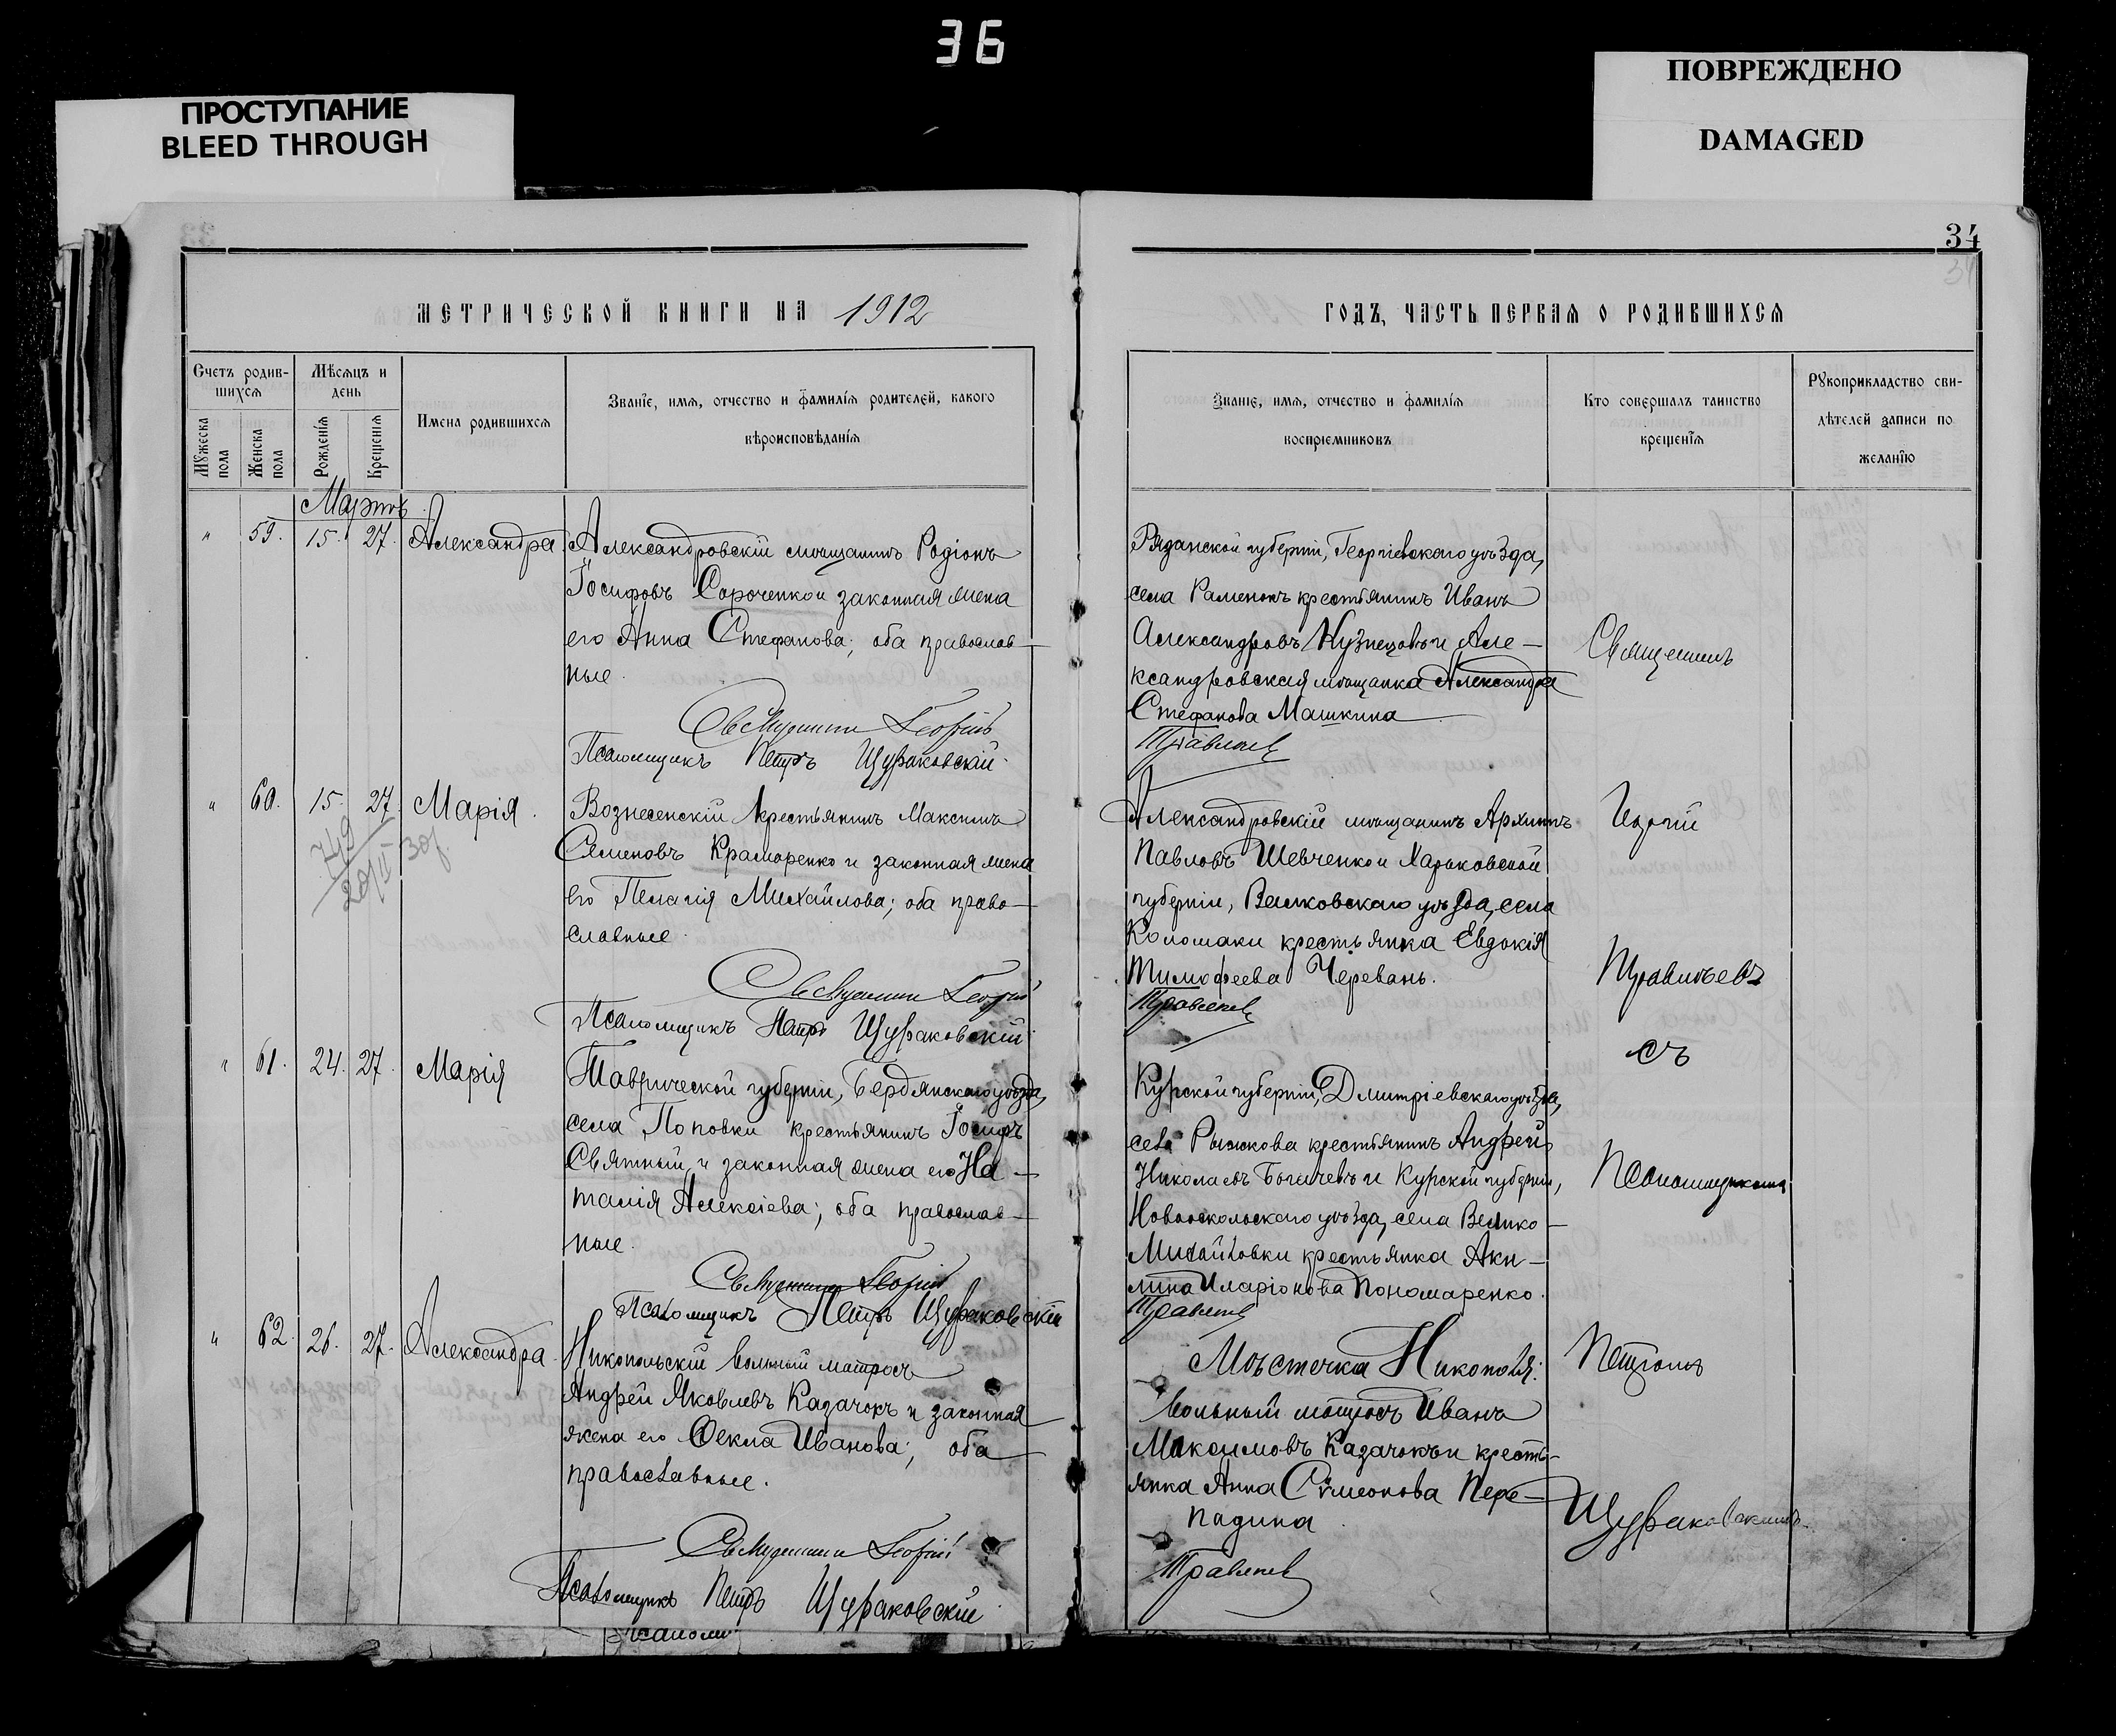 36
ПРОСТУПАНИЕ
BLEED THROUGH
ПОВРЕЖДЕНО
DAMAGED
34
МЕТРИЧЕСКОЙ КНИГИ НА 1912
Счетъ родив-
шихся
Мѣсяцъ и
день
Мужеска
пола
Женска
пола
Рожденія
Крещенія
Имена родившихся
Званіе, имя, отчество и фамилія родителей, какого
вѣроисповѣданія
Мартъ
" 59. 15. 27. Александра
Александровскій мѣщанинъ Родіонъ
Іосифовъ Сороченко и законная жена
его Анна Стефанова; оба православ-
ные.
Священникъ Георгій
Псаломщикъ Петръ Щураковскій
" 60. 15. 27. Марія.
Вознесенскій крестьянинъ Максимъ
Семеновъ Краморенко и законная жена
его Пелагія Михайлова; оба право-
славные.
Священникъ Георгій
Псаломщикъ Петръ Щураковскій
" 61. 24. 27. Марія
Таврической губерніи, Бердянскаго уѣзда,
села Поповки крестьянинъ Іосифъ
Святный и законная жена его На-
талія Алексіева; оба православ-
ные.
Священникъ Георгій
Псаломщикъ Петръ Щураковскій
" 62. 26. 27. Александра
Никопольскій вольный матросъ
Андрей Яковлевъ Казачокъ и законная
жена его Ѳекла Иванова; оба
православные.
Священникъ Георгій
Псаломщикъ Петръ Щураковскій
ГОДЪ, ЧАСТЬ ПЕРВАЯ О РОДИВШИХСЯ
Званіе, имя, отчество и фамилія
воспріемниковъ
Кто совершалъ таинство
крещенія
Рукоприкладство сви-
дѣтелей записи по
желанію
Рязанской губерніи, Георгіевскаго уѣзда,
села Раменокъ крестьянинъ Иванъ
Александровъ Кузнецовъ и Але-
ксандровская мѣщанка Александра
Стефанова Машкина
Александровскій мѣщанинъ Архипъ
Павловъ Шевченко и Харьковской
губерніи, Валковскаго уѣзда, села
Коломаки крестьянка Евдокія
Тимофеева Черевань.
Курской губерніи, Дмитріевскаго уѣзда,
села Рыжкова крестьянинъ Андрей
Николаевъ и Курской губерніи,
Новооскольскаго уѣзда, села Велико-
Михайловки крестьянка Аки-
лина Иларіонова Пономаренко.
Мѣстечка Никополя:
вольный матросъ Иванъ
Максимовъ Казачокъ и кресть-
янка Анна Сѵмеонова Пере-
падина
Священникъ
Георгій
съ
Псаломщикомъ
Петромъ
Щураковскимъ.